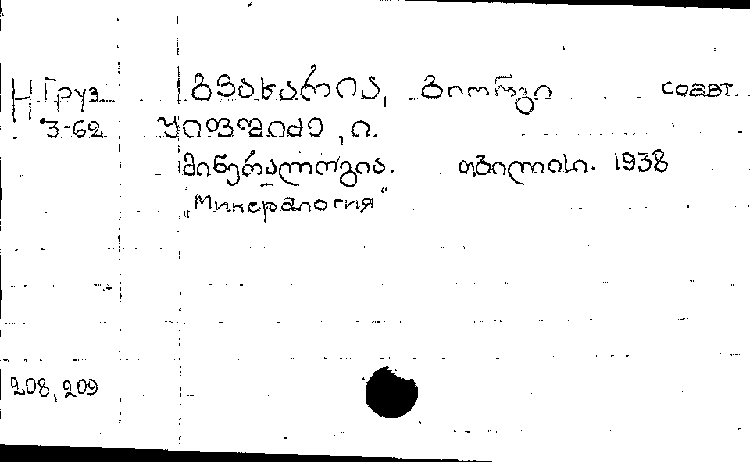 Н Груз გვახარია, გიორგი соавт.
3-62 ყიფშიძე, ი.
მინერალოგია. თბილისი. 1938
„Минералогия“
208, 209